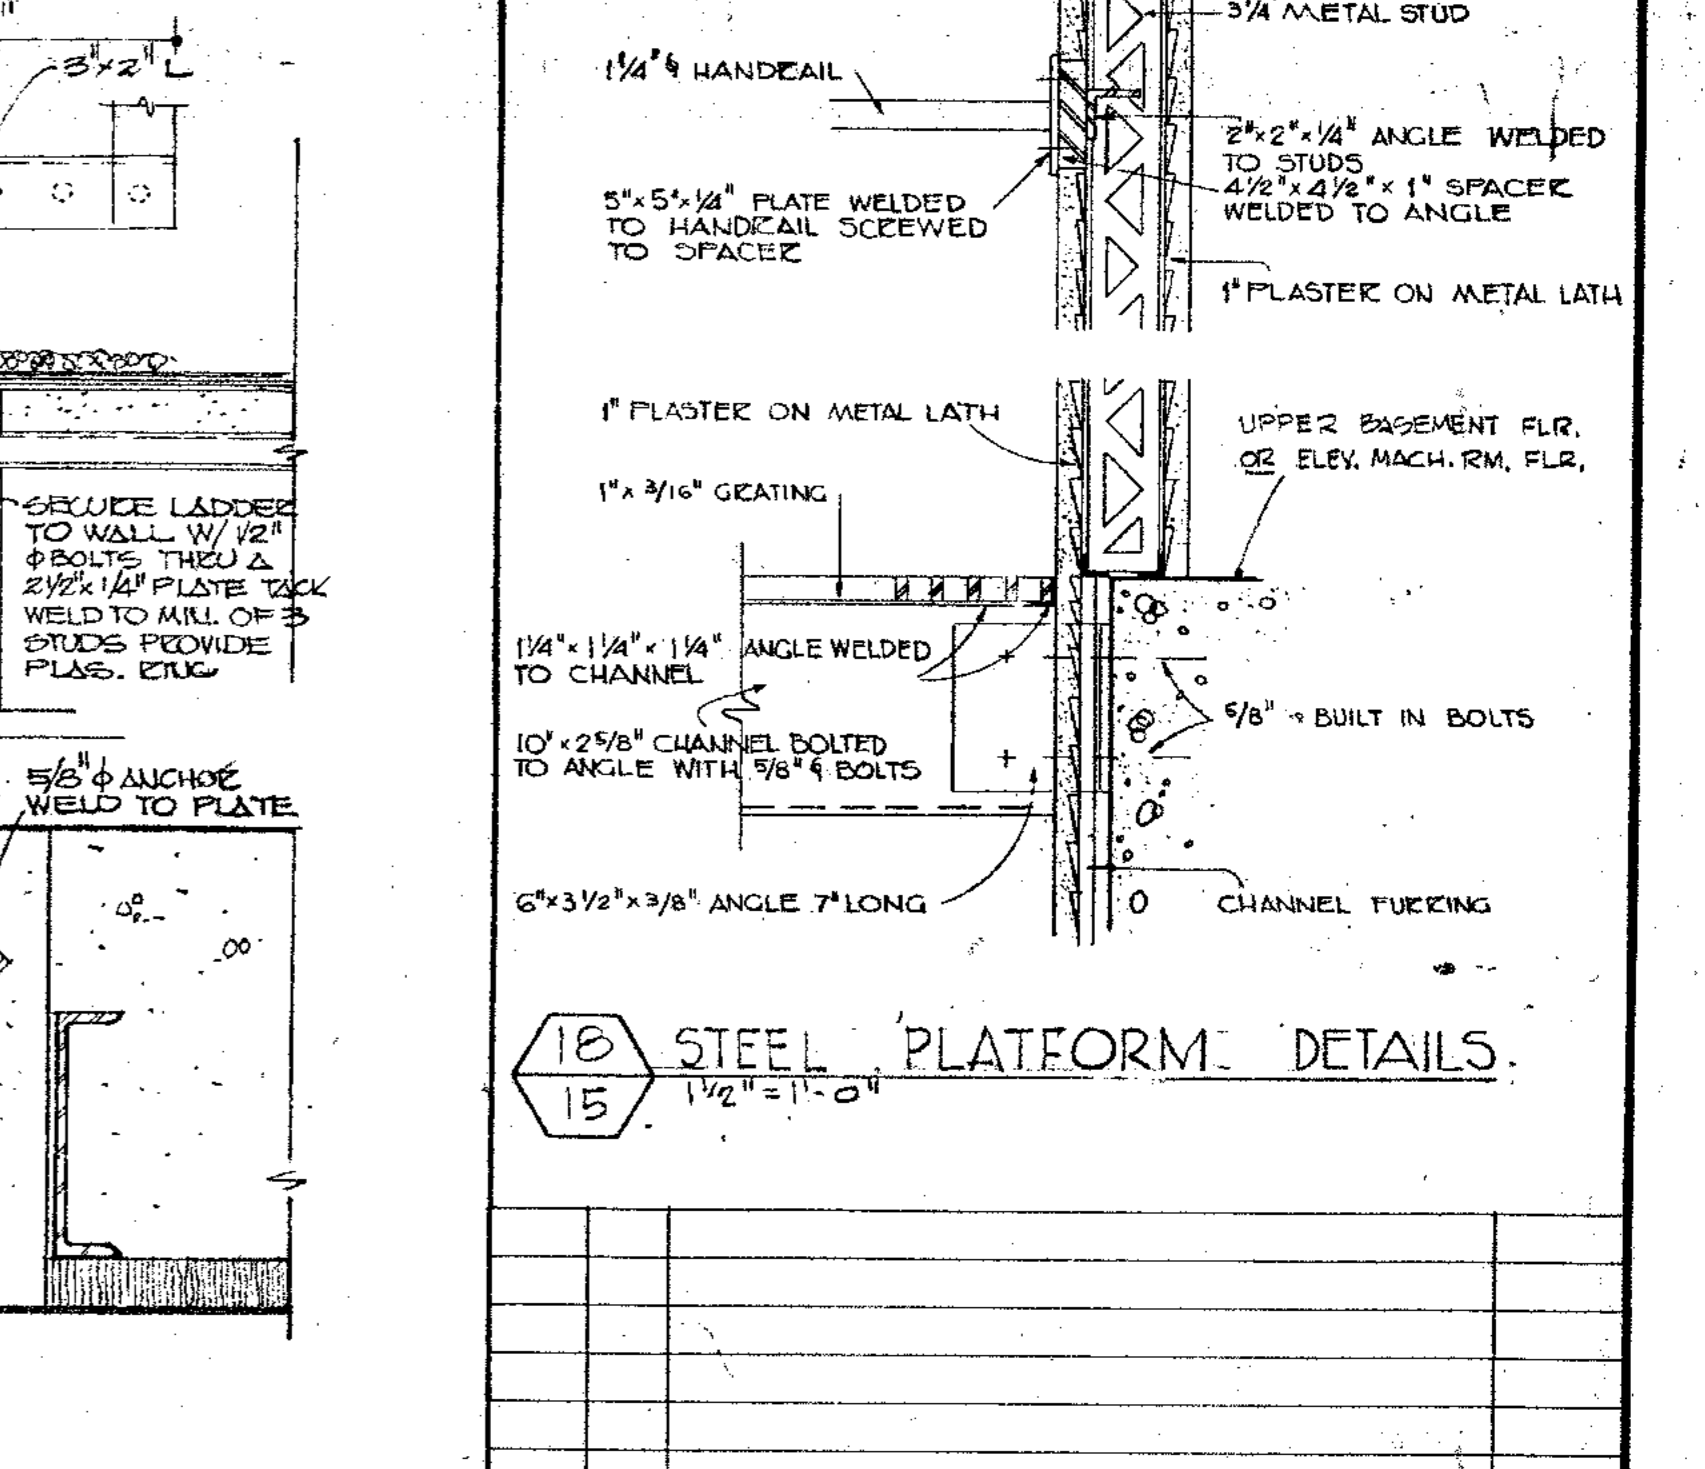 3"x2" L
SECURE LADDER
TO WALL W/ 1/2"
φ BOLTS THRU A
2 1/2"x 1/4" PLATE TACK
WELD TO MIN. OF 3
STUDS PROVIDE
PLAS. RING
5/8" φ ANCHOR
WELD TO PLATE
3 1/4 METAL STUD
1 1/4" φ HANDRAIL
2"x2"x1/4" ANGLE WELDED
TO STUDS
4 1/2"x 4 1/2"x 1" SPACER
WELDED TO ANGLE
5"x 5"x 1/4" PLATE WELDED
TO HANDRAIL SCREWED
TO SPACER
1" PLASTER ON METAL LATH
1" PLASTER ON METAL LATH
UPPER BASEMENT FLR.
OR ELEV. MACH. RM. FLR.
1"x 3/16" GRATING
1 1/4"x 1 1/4"x 1 1/4" ANGLE WELDED
TO CHANNEL
5/8" φ BUILT IN BOLTS
10"x 2 5/8" CHANNEL BOLTED
TO ANGLE WITH 5/8" φ BOLTS
6"x3 1/2"x3/8" ANGLE 7" LONG
CHANNEL FURRING
18
15
STEEL PLATFORM DETAILS.
1 1/2" = 1'-0"